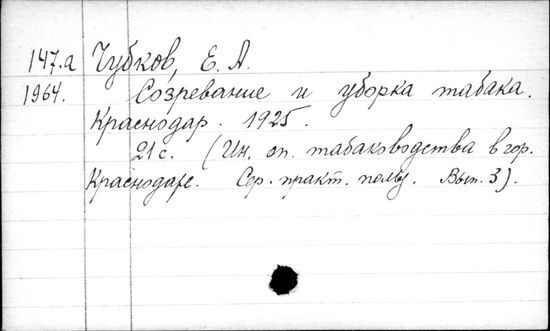 147.а Чубков, Е. А.
1964. Созревание и уборка табака.
Краснодар. 1925.
21 с. (Ин. оп. табаководства в гор.
Краснодаре. Сер. практ. Вып. 3).